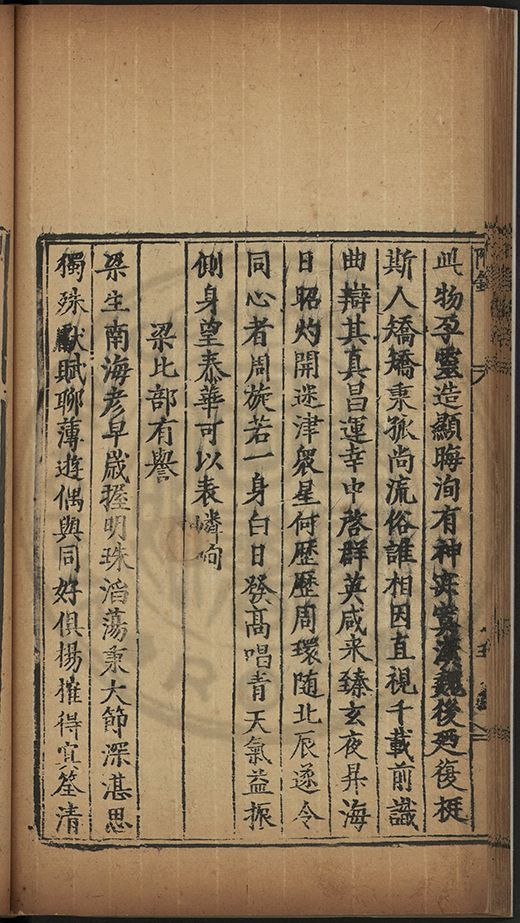 附錄
此物孕靈造顯晦洵有神寥寞漢魏後廼復挺
斯人矯矯秉孤尚流俗誰相因直視千載前識
曲辯其真昌運幸中啓群英咸來臻玄夜昇海
日昭灼開迷津衆星何歷歷周環隨北辰遂令
同心者周旋若一身白日發高唱青天氣益振
側身望泰華可以表嶙峋
梁比部有譽
梁生南海彥早歲握明珠滔蕩秉大節深湛思
獨殊獻賦聊薄遊偶與同好俱揚搉得真筌清